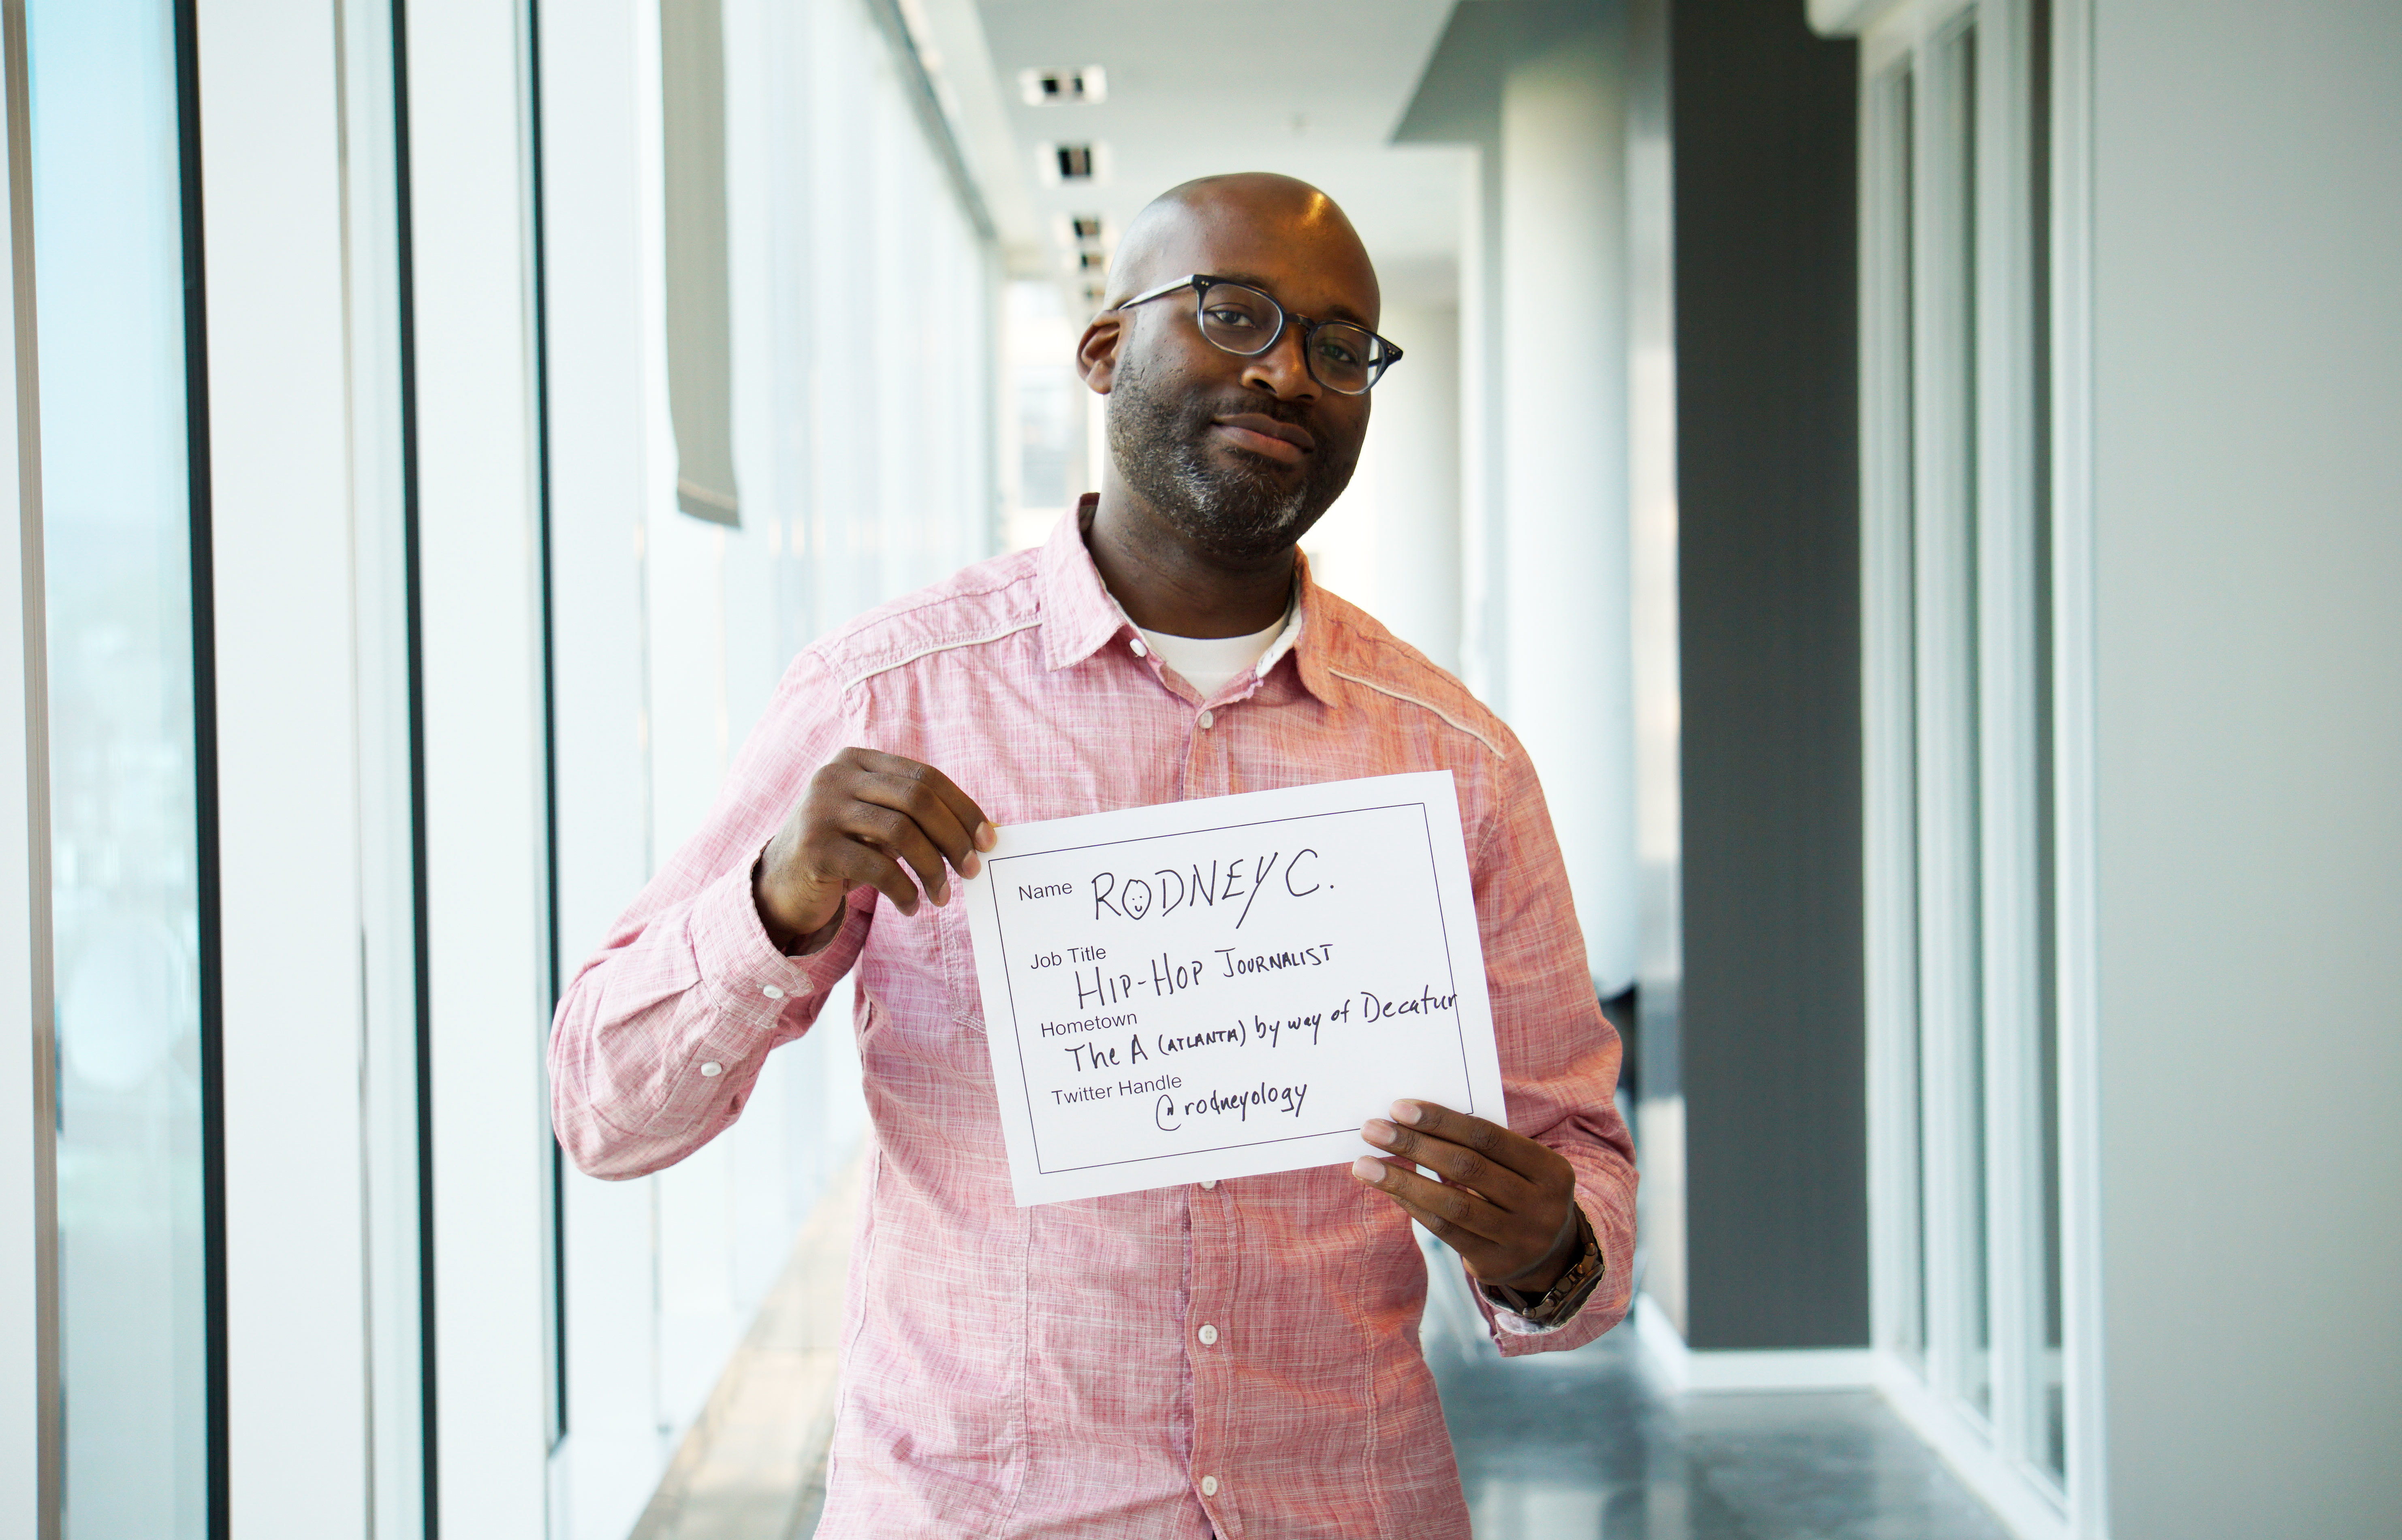 Name RODNEY C.
Job Title
HIP-HOP JOURNALIST
Hometown
The A (ATLANTA) by way of Decatur
Twitter Handle
@rodneyology